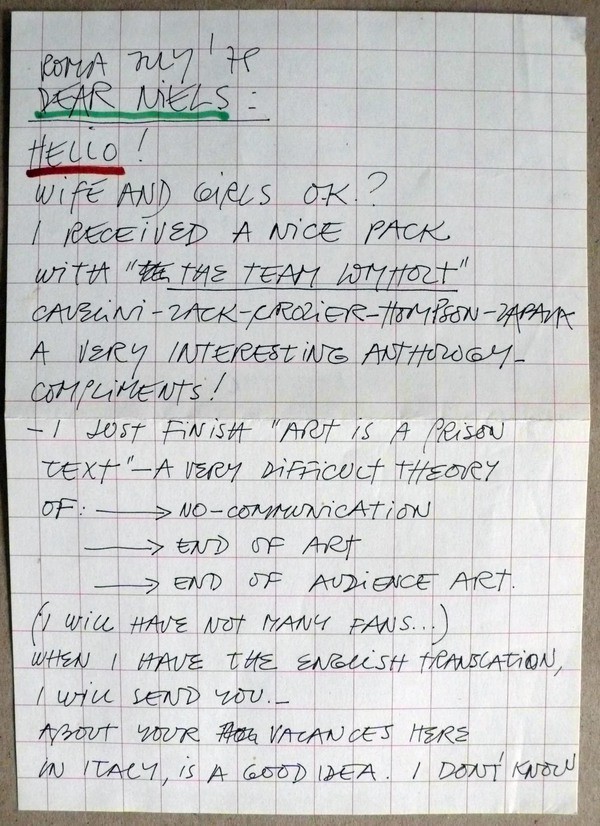 ROMA JULY '78
DEAR NIELS:
HELLO!
WIFE AND GIRLS O.K.?
I RECEIVED A NICE PACK
WITH "THE TEAM LOMHOLT"
CAVELINI-ZACK-CROZIER-HOMPSON-ZAPATA
A VERY INTERESTING ANTHOLOGY-
COMPLIMENTS!
-I JUST FINISH "ART IS A PRISON
TEXT"-A VERY DIFFICULT THEORY
OF: → NO-COMMUNICATION
→ END OF ART
→ END OF AUDIENCE ART.
(I WILL HAVE NOT MANY FANS...)
WHEN I HAVE THE ENGLISH TRANSLATION,
I WILL SEND YOU.-
ABOUT YOUR VACANCES HERE
IN ITALY, IS A GOOD IDEA. I DON'T KNOW